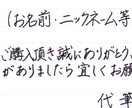 (お名前・ニックネーム等
ご購入頂き誠にありがとう、
がありましたら宜しくお願
代筆